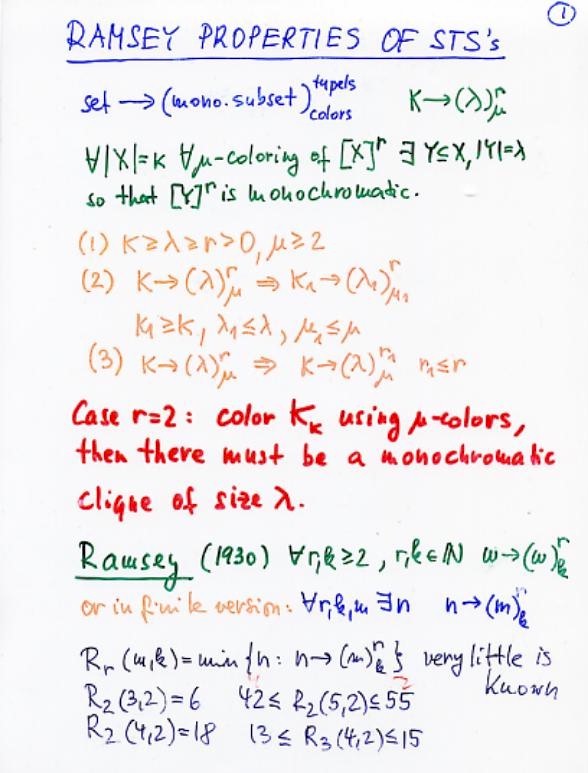 1
RAMSEY PROPERTIES OF STS's
set → (mono.subset)^{tupels}_{colors} K→(λ)^r_μ
∀|X|=κ ∀μ-coloring of [X]^r ∃ Y⊆X, |Y|=λ
so that [Y]^r is monochromatic.
(1) κ≥λ≥r>0, μ≥2
(2) κ→(λ)^r_μ ⇒ κ₁→(λ₁)^r_{μ₁}
κ₁≥κ, λ₁≤λ, μ₁≤μ
(3) κ→(λ)^r_μ ⇒ κ→(λ)^{r₁}_μ r₁≤r
Case r=2: color K_κ using μ-colors,
then there must be a monochromatic
clique of size λ.
Ramsey (1930) ∀r,k≥2, r,k∈ℕ ω→(ω)^r_k
or in finite version: ∀r,k,m ∃n n→(m)^r_k
R_r(m,k)=min{n: n→(m)^r_k} very little is
known
R₂(3,2)=6 42≤R₂(5,2)≤55
R₂(4,2)=18 13≤R₃(4,2)≤15